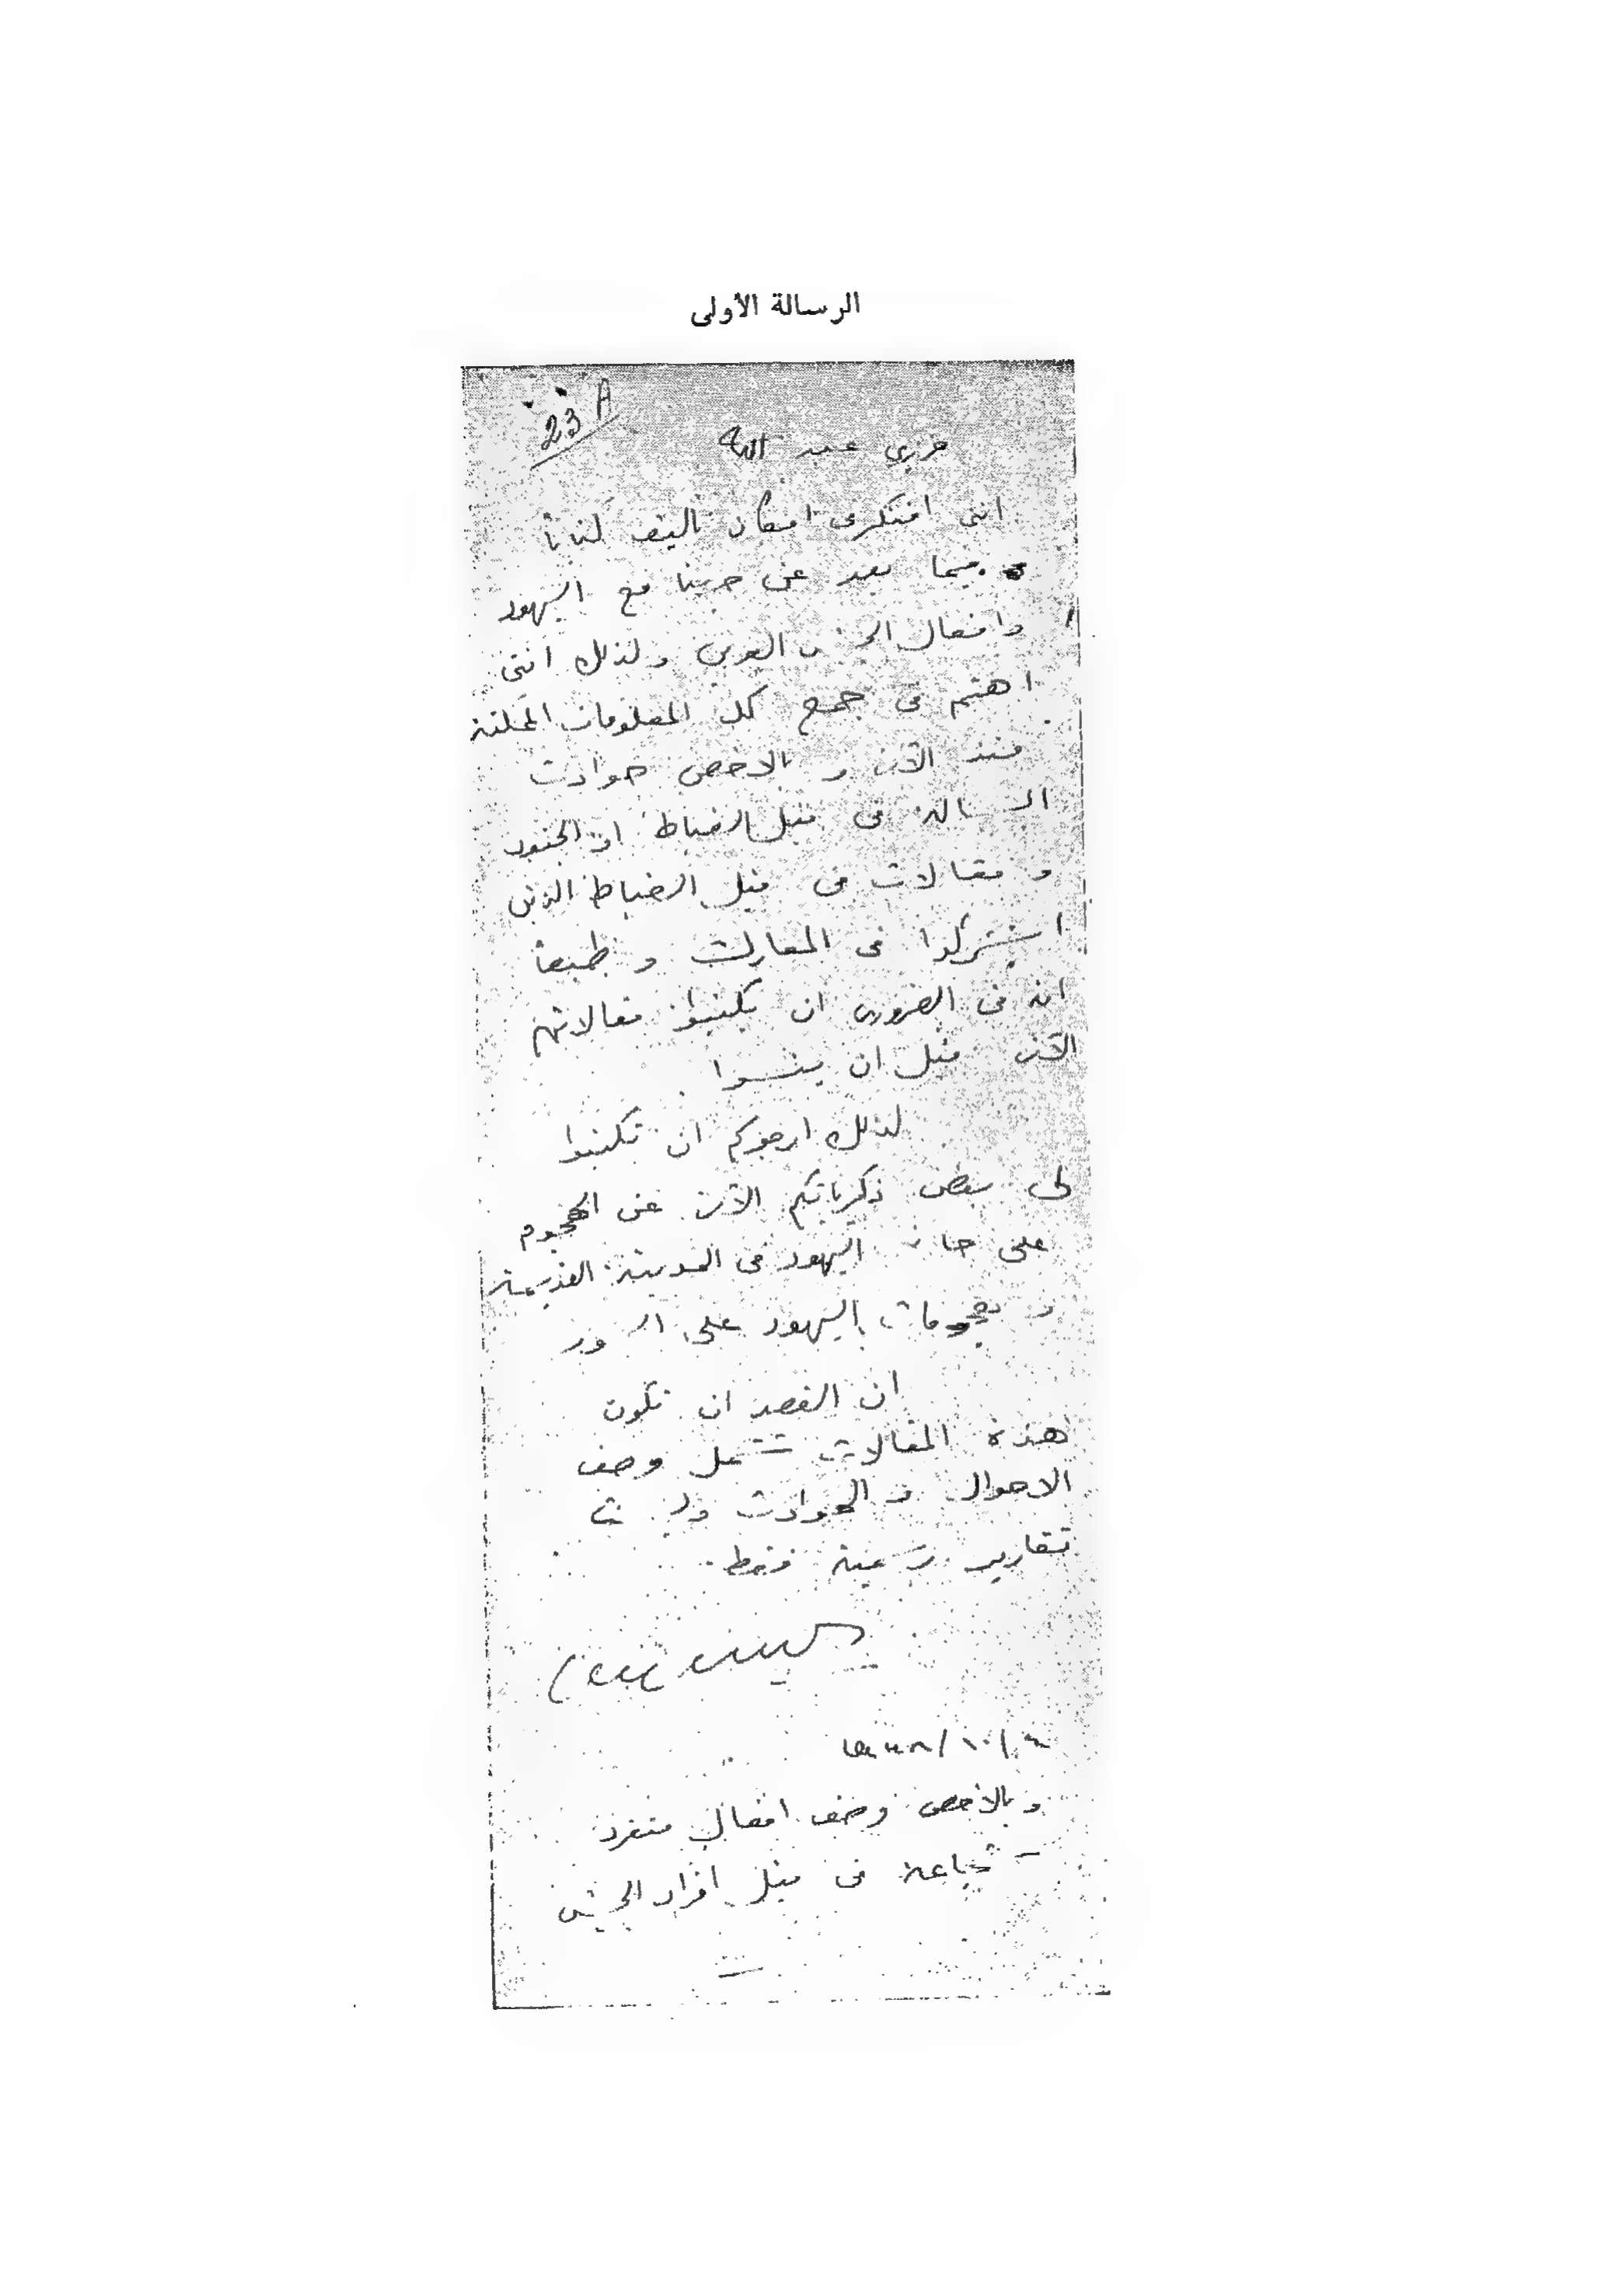 الرسالة الأولى
23 A
عزيزي عبد الله
انني افتكر في امكان تأليف كتابا
فيما بعد عن حربنا مع اليهود
وافعال الجيش العربي ولذلك انني
اهتم في جمع كل المعلومات الممكنة
منذ الآن و بالاخص حوادث
البسالة من قبل الضباط او الجنود
و مقالات من قبل الضباط الذين
اشتركوا في المعارك و طبعاً
انه من الضروري ان يكتبوا مقالاتهم
الآن قبل ان ينسوا .
لذلك ارجوكم ان تكتبوا
لي بعض ذكرياتكم الآن عن الهجوم
على حارة اليهود في المدينة القديمة
و هجومات اليهود على السور
ان القصد ان تكون
هذه المقالات تشمل وصف
الاحوال و الحوادث وليست
تقارير رسمية فقط .
و بالاخص وصف افعال منفردة
شجاعة من قبل افراد الجيش